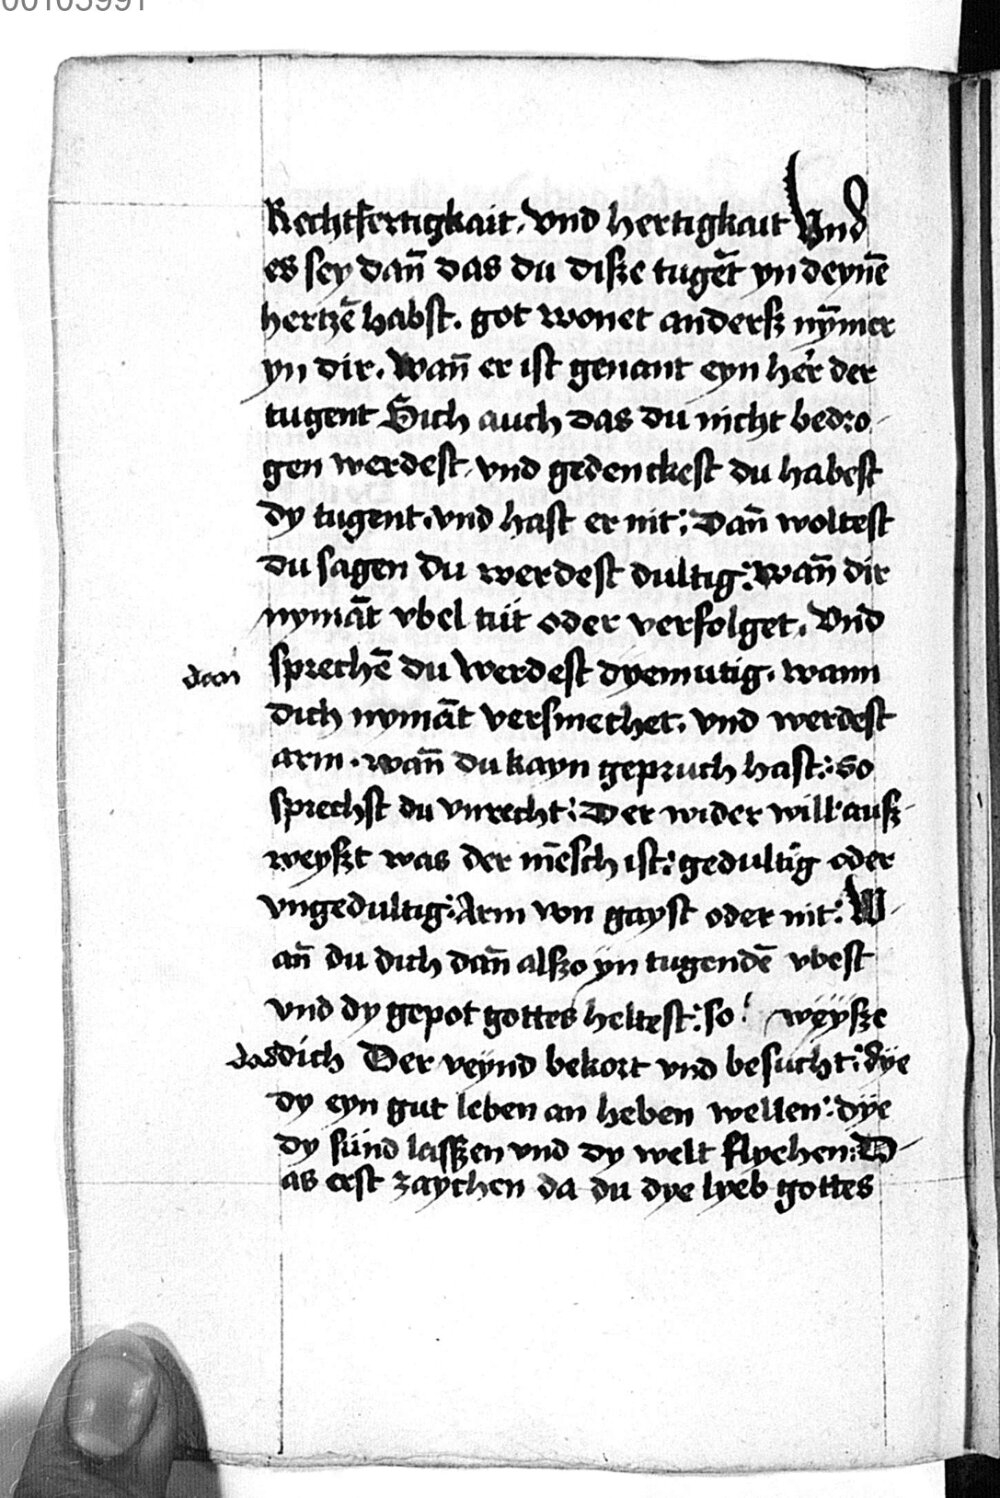 00103991
Rechtfertigkait. vnd hertigkait Vnd
es sey dan̄ das du disze tugēt yn deynē
hertzē habst. got wonet andersz nȳmer
yn dir. Wan̄ er ist genant eyn her der
tugent Sich auch das du nicht bedro
gen werdest vnd gedenckest du habest
dy tugent. vnd hast er nit: Dan̄ woltest
du sagen du werdest dultig: wan̄ dir
nymāt vbel tüt oder verfolget. Vnd
dan sprechē du werdest dyemutig. wann
dich nymāt versmechet. vnd werdest
arm. wan̄ du kayn gepruch hast: so
sprechst du vnrecht: Der wider will ausz
weyszt was der mēsch ist: gedultig oder
vngedultig: Arm von gayst oder nit: W
an̄ du dich dan̄ alszo yn tugendē vbest
vnd dy gepot gottes heltest: so weysze
das dich Der veynd bekort vnd besucht: dye
dy eyn gut leben an heben wellen: dye
dy sünd lasszen vnd dy welt flyehen: D
as erst zaychen da du dye lyeb gottes